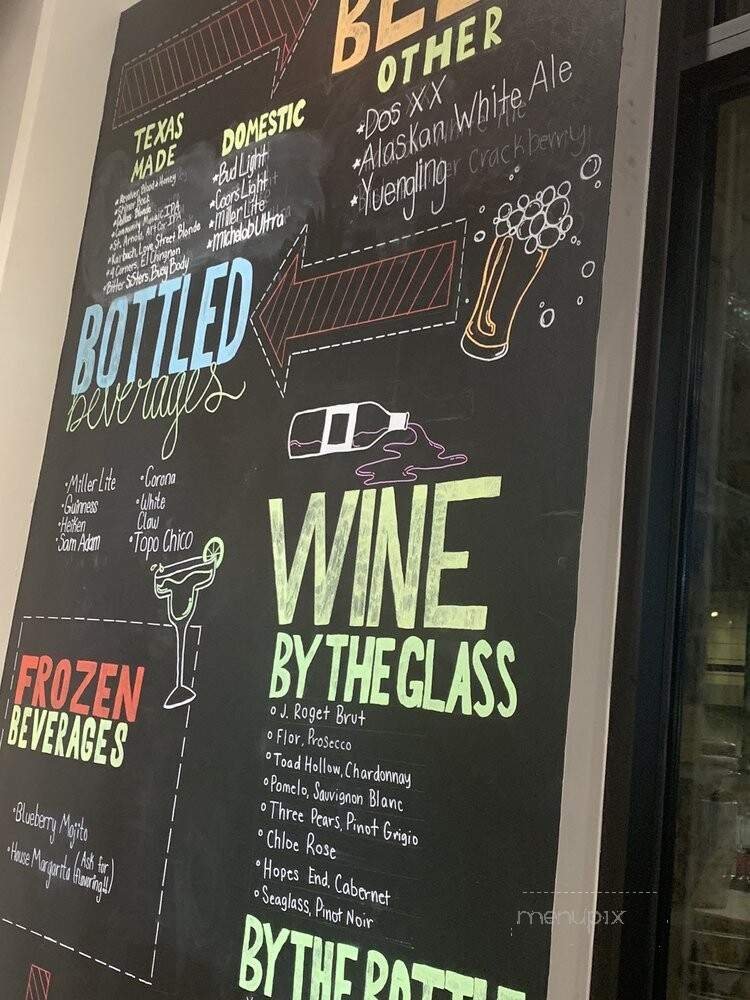 OTHER
*Dos XX
*Alaskan White Ale
*Yuengling
Crackberry
TEXAS
MADE
*Revolver, Blood & Honey
*Shiner Bock
*Dallas Blonde
*Community, Mosaic IPA
*St. Arnold, Art Car IPA
*Karbach, Love Street Blonde
*4 Corners, El Chingon
*Bitter Sisters, Busy Body
DOMESTIC
*Bud Light
*Coors Light
*Miller Lite
*Michelob Ultra
BOTTLED
beverages
•Miller Lite
•Guinness
•Heiken
•Sam Adam
•Corona
•White
Claw
•Topo Chico
WINE
BY THE GLASS
° J. Roget Brut
° Flor, Prosecco
° Toad Hollow, Chardonnay
° Pomelo, Sauvignon Blanc
° Three Pears, Pinot Grigio
° Chloe Rose
° Hopes End, Cabernet
° Seaglass, Pinot Noir
FROZEN
BEVERAGES
°Blueberry Mojito
°House Margarita (Ask for
flavoring!!)
BY THE BOTTLE
menupix